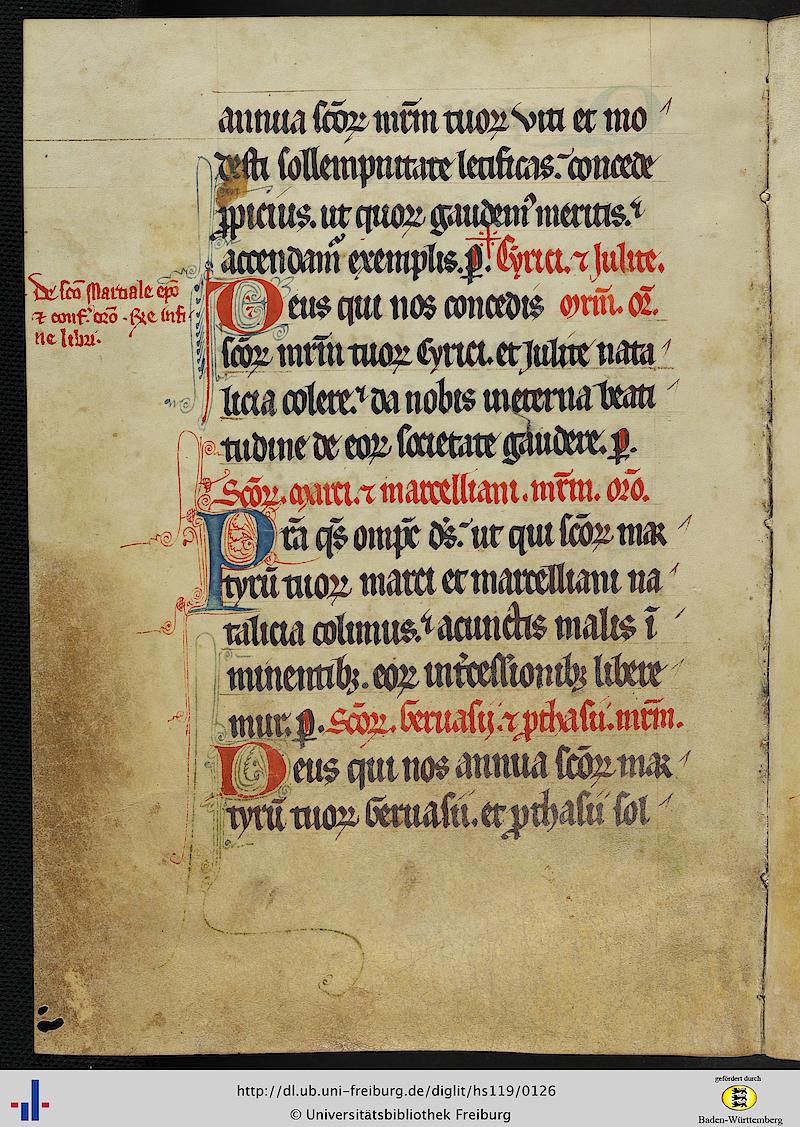 annua sc̄oꝝ mr̄m tuoꝝ viti et mo
desti sollempnitate letificas. concede
ꝓpicius. ut quoꝝ gaudemꝰ meritis.
accendamᷣ exemplis. p̱. Cyrici. ⁊ Julite.
De sc̄o Marciale ep̄o
⁊ conf. or̄o
ne libri.
Deus qui nos concedis mr̄m. or̄.
sc̄oꝝ mr̄m tuoꝝ Cyrici. et Julite nata
licia colere. da nobis in eterna beati
tudine de eoꝝ societate gaudere. p̱.
Sc̄oꝝ. marci. ⁊ marcelliani. mr̄m. or̄o.
Pr̄a q̄s omp̄c d̄s. ut qui sc̄oꝝ mar
tyrū tuoꝝ marci et marcelliani na
talicia colimus. a cunctis malis ī
minentibꝫ. eoꝝ int̄cessionibꝫ libere
mur. p̱. Sc̄oꝝ. Geruasij. ⁊ ꝓthasii. mr̄m.
Deus qui nos annua sc̄oꝝ mar
tyrū tuoꝝ Geruasii. et ꝓthasii sol
http://dl.ub.uni-freiburg.de/diglit/hs119/0126
© Universitätsbibliothek Freiburg
gefördert durch
Baden-Württemberg